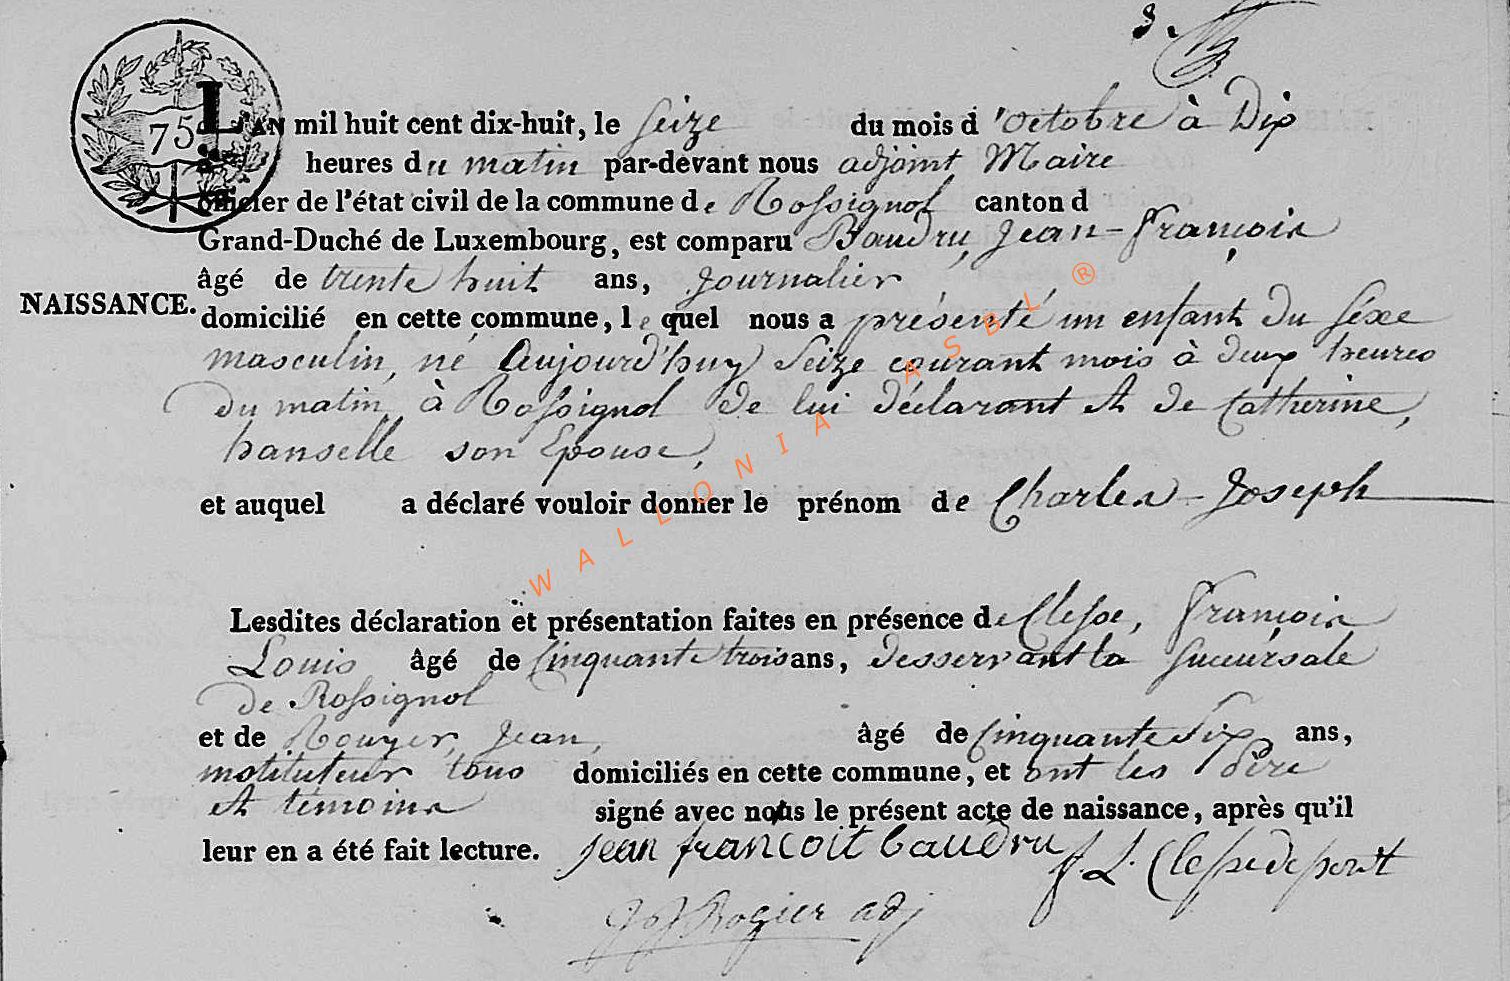 8.
75
L'AN mil huit cent dix-huit, le Seize du mois d'octobre à Dix
heures du matin par-devant nous adjoint Maire
officier de l'état civil de la commune de Rossignol canton d
Grand-Duché de Luxembourg, est comparu Baudru, Jean-François
âgé de trente huit ans, Journalier
NAISSANCE. domicilié en cette commune, lequel nous a présenté un enfant du sexe
masculin, né Aujourd'huy Seize courant mois à deux heures
du matin, à Rossignol de lui déclarant et de Catherine,
hanselle son Epouse,
et auquel a déclaré vouloir donner le prénom de Charles-Joseph
Lesdites déclaration et présentation faites en présence de Clesse, François
Louis âgé de Cinquante trois ans, desservant la succursale
de Rossignol
et de Rouyer, Jean, âgé de Cinquante Six ans,
instituteur tous domiciliés en cette commune, et ont les Père
et témoins signé avec nous le présent acte de naissance, après qu'il
leur en a été fait lecture. jean francoit baudru f. L. Clessedepont
Rogier adj
WALLONIA ASBL ®